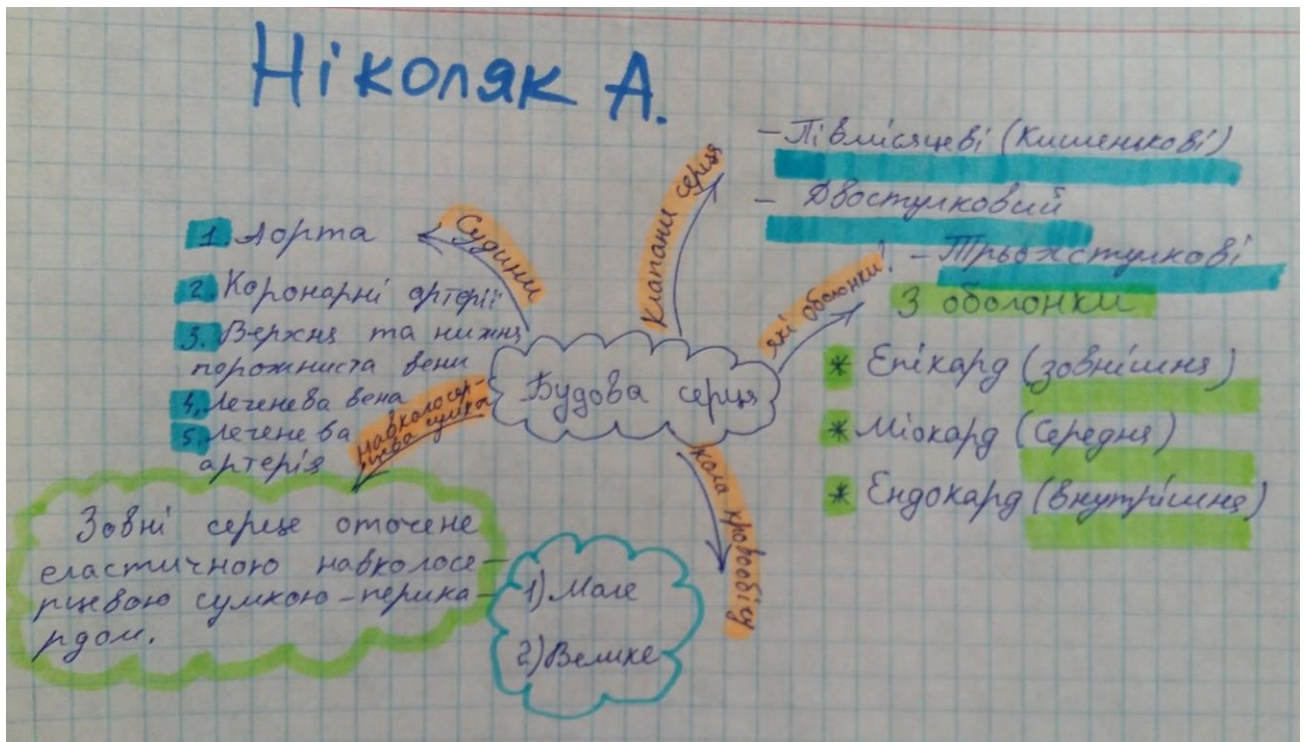 Ніколяк А.
Судини
1. Аорта
2. Коронарні артерії
3. Верхня та нижня
порожниста вени
4. Легенева вена
5. Легенева
артерія
Клапани серця
- Півмісяцеві (Кишенькові)
- Двостулковий
- Трьохстулкові
які оболонки!
3 оболонки
* Епікард (зовнішня)
* Міокард (Середня)
* Ендокард (внутрішня)
Будова серця
навколосер-
цева сумка
Зовні серце оточене
еластичною навколосе-
рцевою сумкою - перика-
рдом.
кола кровообігу
1) Мале
2) Велике